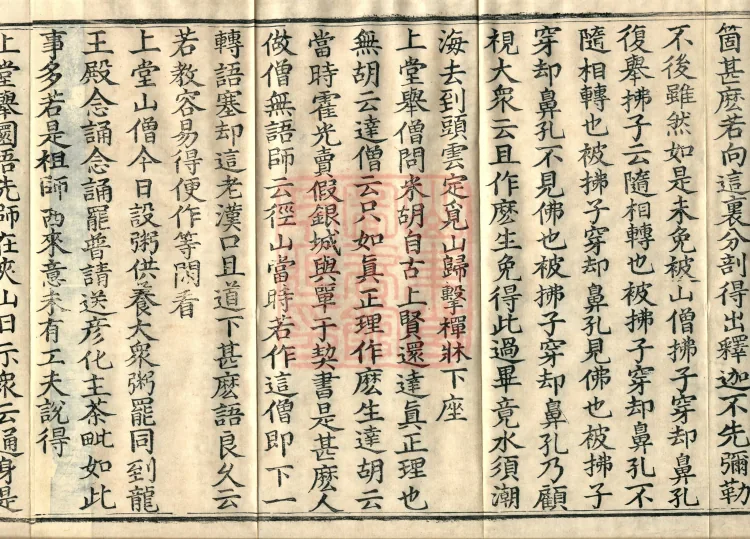 箇甚麽若向這裏分剖得出釋迦不先彌勒
不後雖然如是未免被山僧拂子穿却鼻孔
復舉拂子云隨相轉也被拂子穿却鼻孔不
隨相轉也被拂子穿却鼻孔見佛也被拂子
穿却鼻孔不見佛也被拂子穿却鼻孔乃顧
視大衆云且作麽生免得此過畢竟水須潮
海去到頭雲定覓山歸擊禪牀下座
上堂舉僧問米胡自古上賢還達眞正理也
無胡云達僧云只如眞正理作麽生達胡云
當時霍光賣假銀城與單于契書是甚麽人
做僧無語師云徑山當時若作這僧即下一
轉語塞却這老漢口且道下甚麽語良久云
若教容易得便作等閑看
上堂山僧今日設粥供養大衆粥罷同到龍
王殿念誦念誦罷普請送彦化主茶毗如此
事多若是祖師西來意未有工夫說得
上堂舉圜悟先師在夾山日示衆云通身是